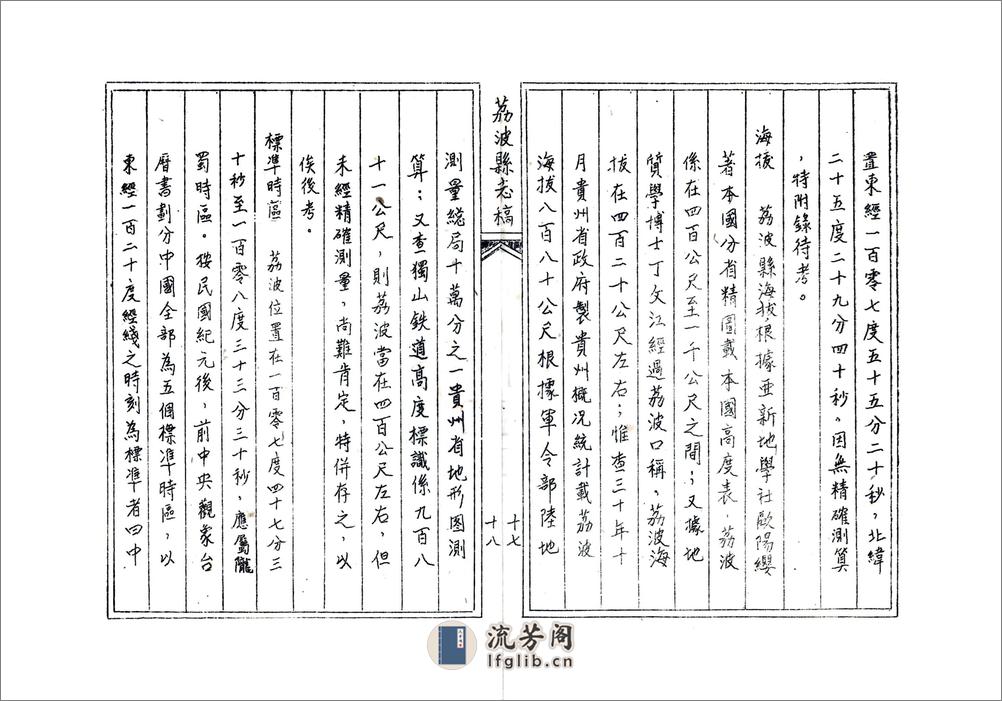 置東經一百零七度五十五分二十秒，北緯
二十五度二十九分四十秒。因無精確測算
，特附錄待考。
海拔　荔波縣海拔，根據亜新地學社歐陽纓
著本國分省精圖載本國高度表，荔波
係在四百公尺至一千公尺之間；又據地
質學博士丁文江經過荔波口稱，荔波海
拔在四百二十公尺左右；惟查三十年十
月貴州省政府製貴州概況統計載荔波
海拔八百八十公尺根據軍令部陸地
十七
荔波縣志稿
十八
測量總局十萬分之一貴州省地形图測
算；又查獨山鉄道高度標識係九百八
十一公尺，則荔波當在四百公尺左右，但
未經精確測量，尚難肯定，特併存之，以
俟後考。
標準時區　荔波位置在一百零七度四十七分三
十秒至一百零八度三十三分三十秒，應屬隴
蜀時區。按民國紀元後，前中央觀象台
曆書劃分中國全部為五個標準時區，以
東經一百二十度經綫之時刻為標準者曰中
流芳阁
lfglib.cn